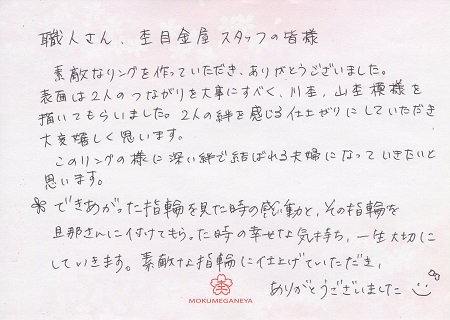 職人さん、杢目金屋スタッフの皆様
素敵なリングを作っていただき、ありがとうございました。
表面は2人のつながりを大事にすべく、川杢、山杢模様を
描いてもらいました。2人の絆を感じる仕上がりにしていただき
大変嬉しく思います。
このリングの様に深い絆で結ばれる夫婦になっていきたいと
思います。
できあがった指輪を見た時の感動と、その指輪を
旦那さんに付けてもらった時の幸せな気持ち、一生大切に
していきます。素敵な指輪に仕上げていただき、
ありがとうございました
MOKUMEGANEYA